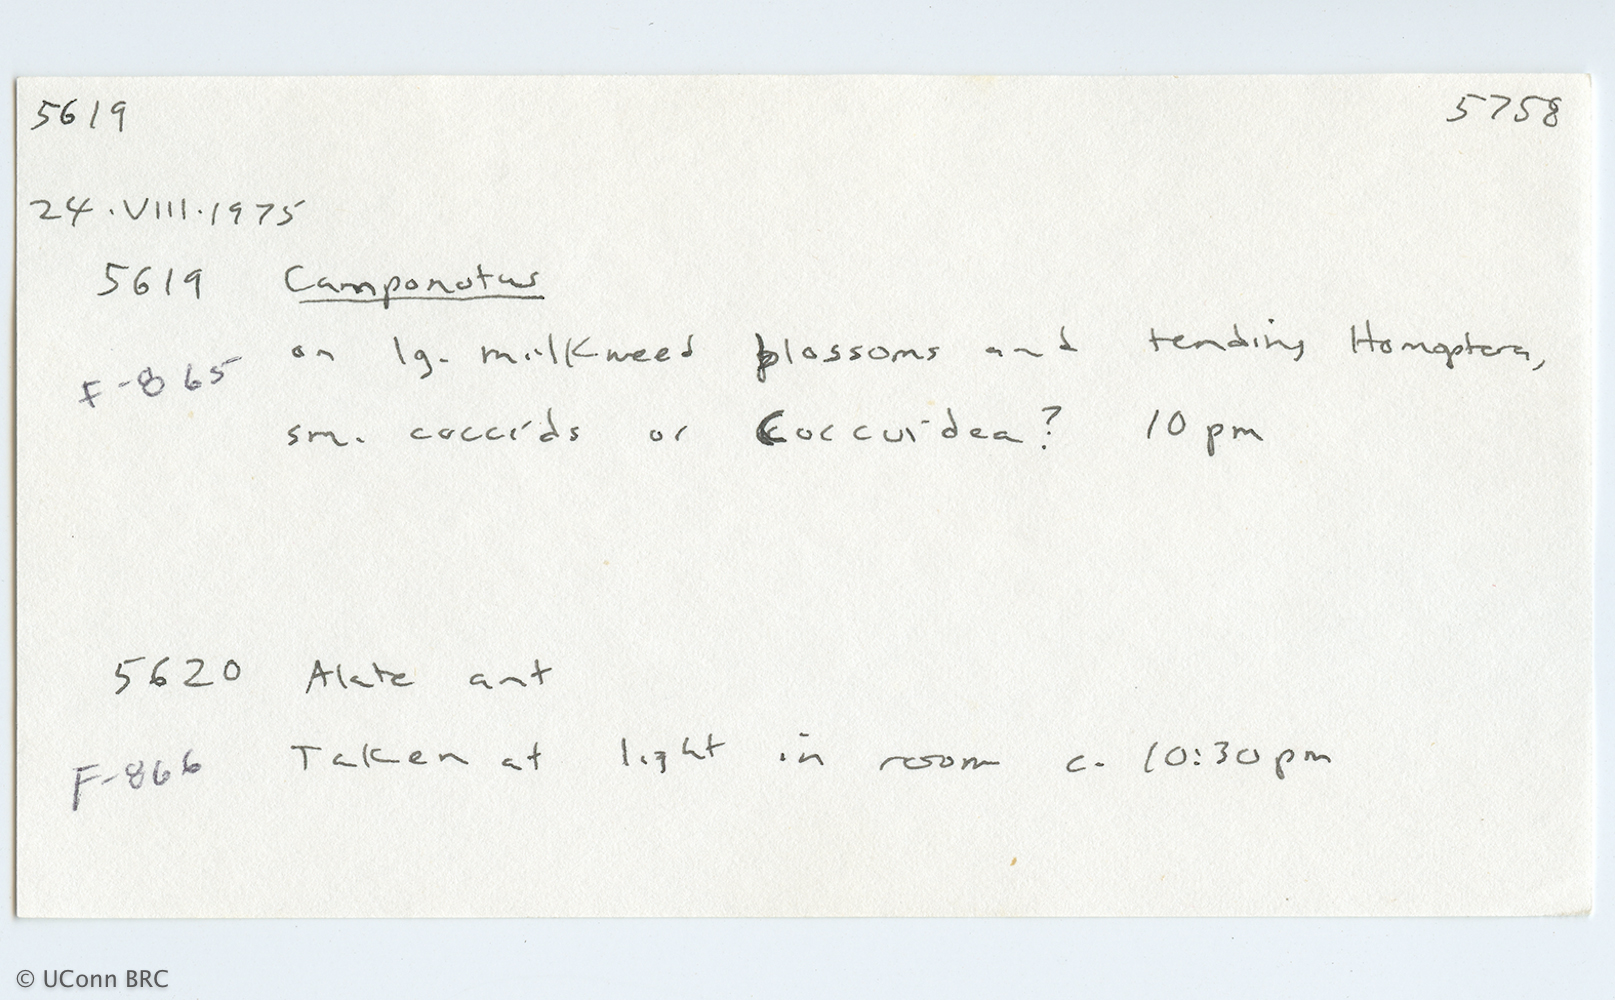 5619 5758
24.VIII.1975
5619 Camponotus
on lg. milkweed blossoms and tending Homoptera,
F-865
sm. coccids or Coccuidea? 10 pm
5620 Alate ant
Taken at light in room c. 10:30 pm
F-866
© UConn BRC